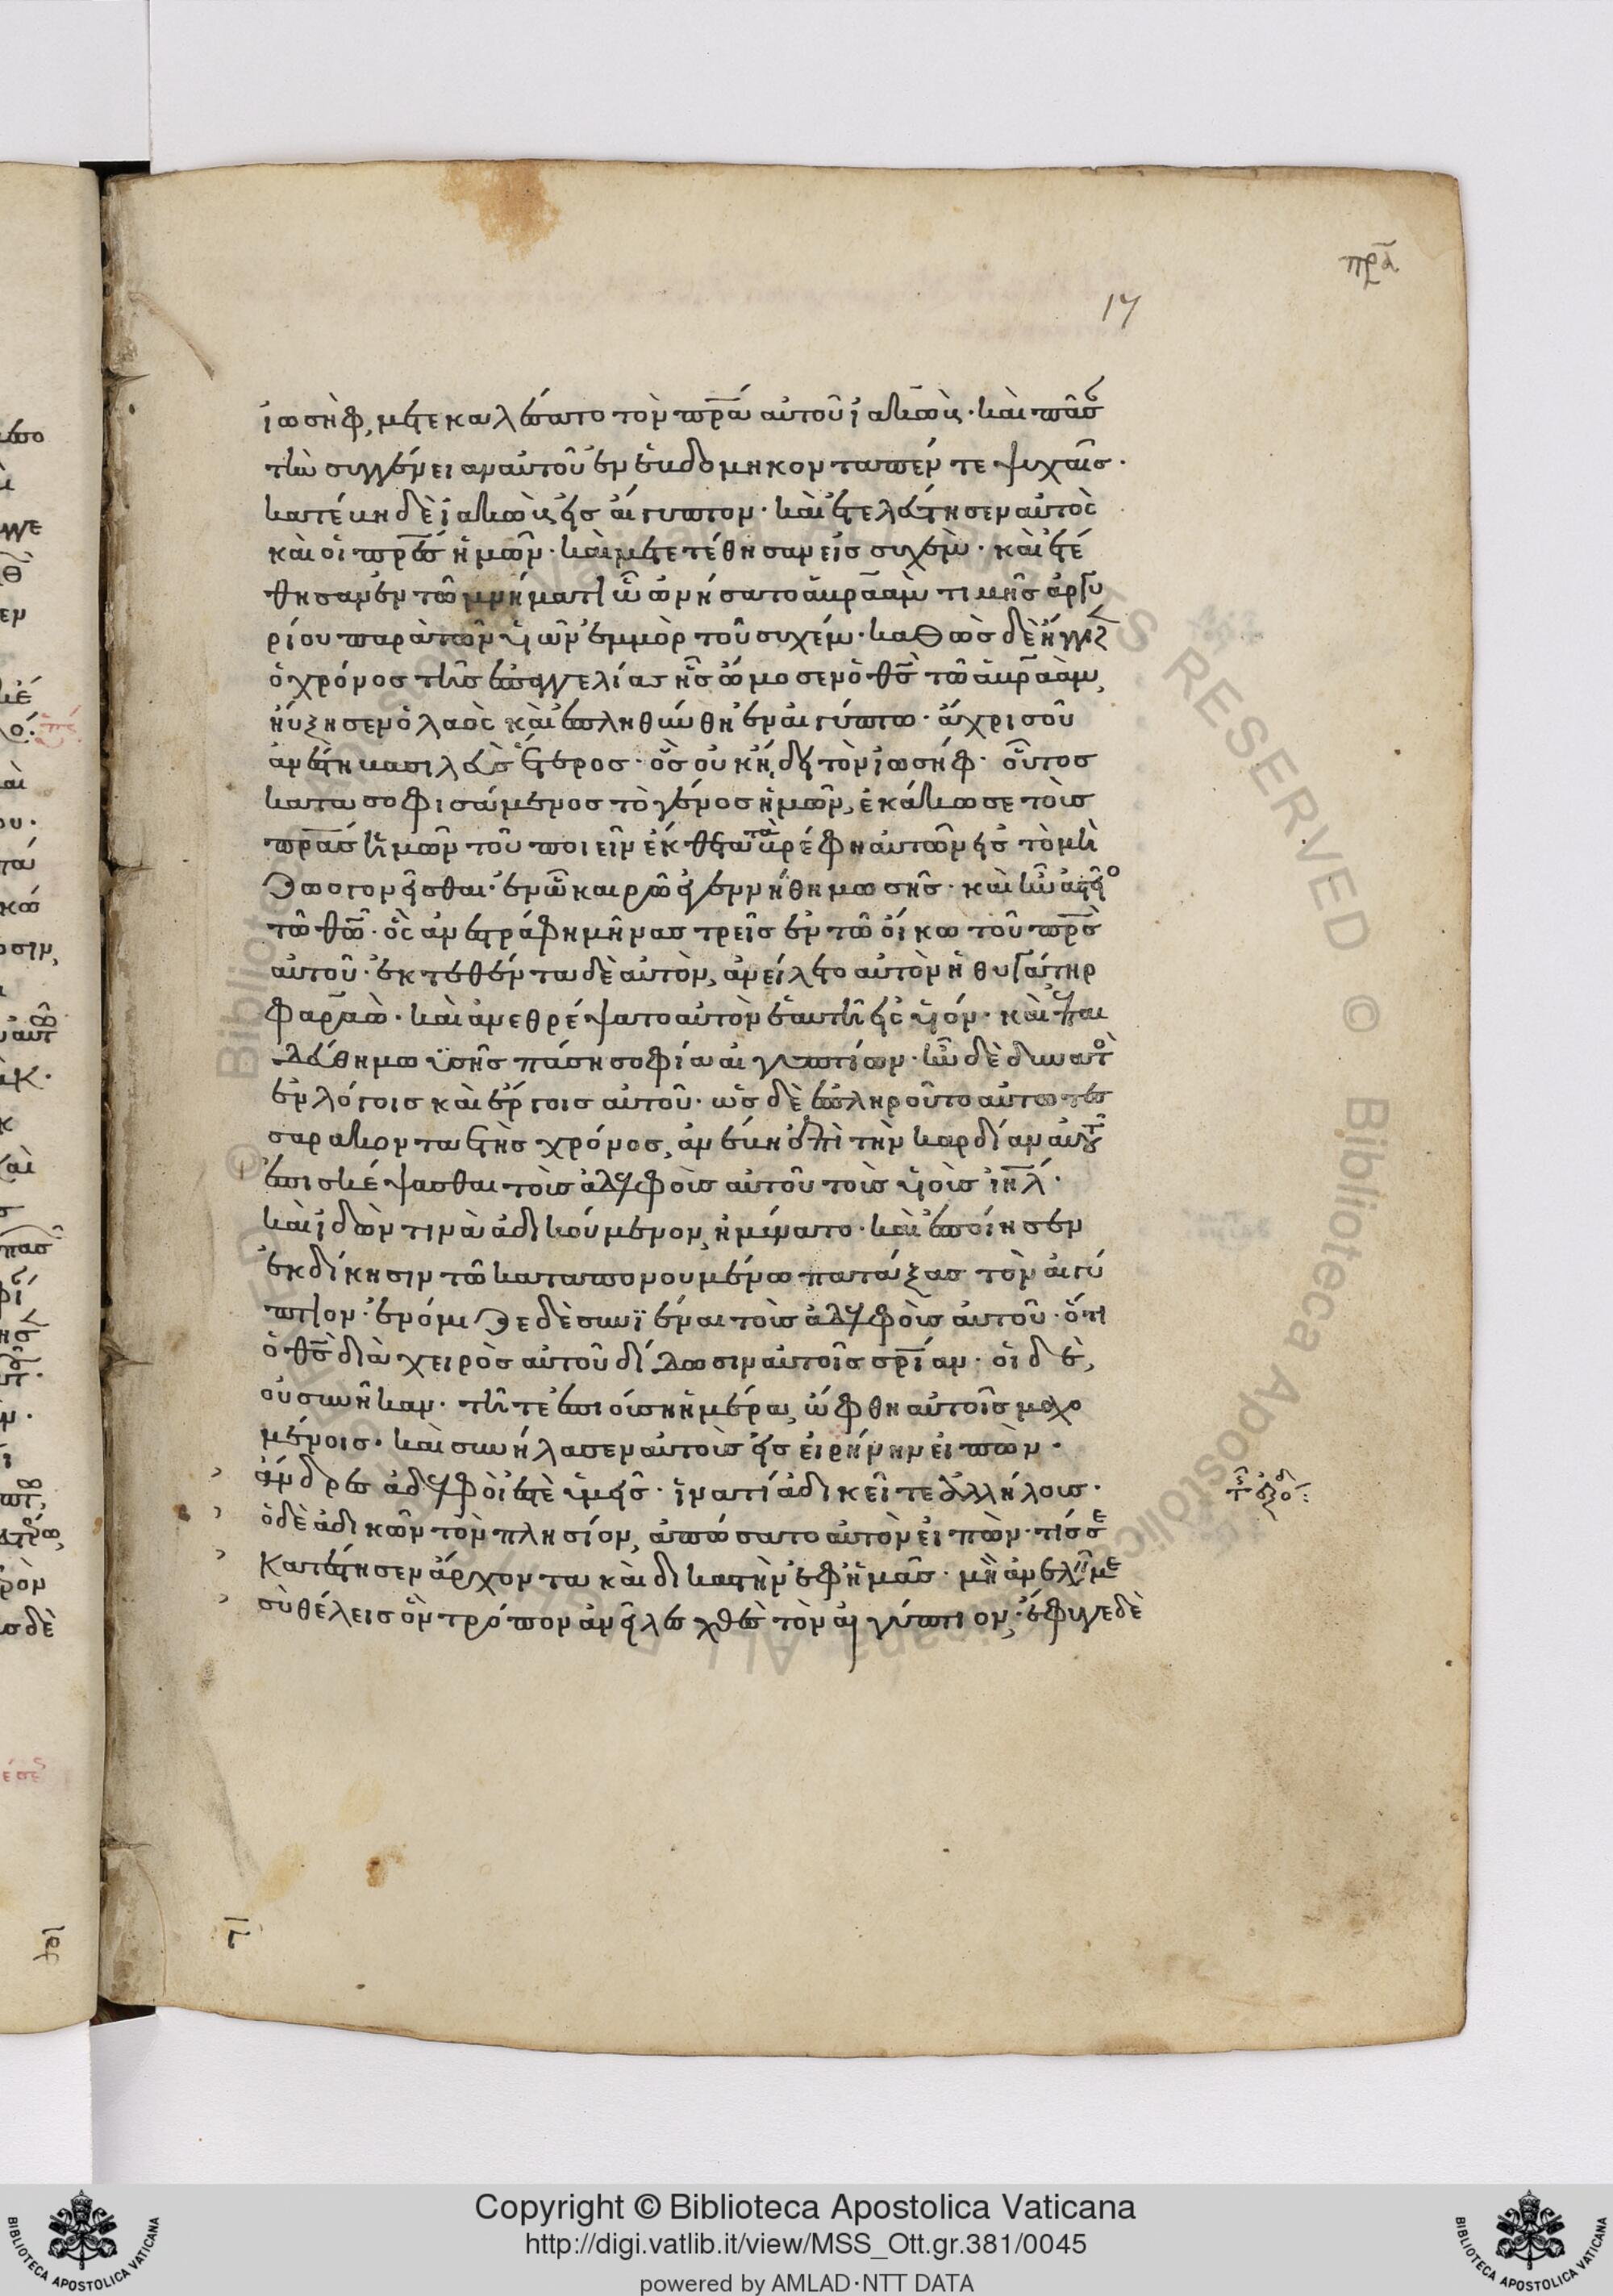 πρα
17
ἰωσὴφ, μετεκαλέσατο τὸν πρ̅α αὐτοῦ ἰακὼβ· καὶ πᾶσ
τὴν συγγένειαν αὐτοῦ ἐν ἑβδομηκονταπέντε ψυχαῖς·
κατέβη δὲ ἰακὼβ εἰς αἴγυπτον· καὶ ἐτελεύτησεν αὐτὸς
καὶ οἱ πρ̅ες ἡμῶν· καὶ μετετέθησαν εἰς συχὲμ· καὶ ἐτέ
θησαν ἐν τῶ μνήματι ὧ ὠνήσατο ἀβραὰμ τιμῆς ἀργυ
ρίου παρὰ τῶν υἱῶν ἐμμὸρ τοῦ συχέμ· καθὼς δὲ ἤγγιζ
ὁ χρόνος τῆς ἐπαγγελίας ἧς ὤμοσεν ὁ θ̅ς τῶ ἀβραὰμ,
ηὔξησεν ὁ λαὸς καὶ ἐπληθύνθη ἐν αἰγύπτω· ἄχρις οὗ
ἀνέστη βασιλεὺς ἕτερος· ὃς οὐκ ἤδει τὸν ἰωσήφ· οὗτος
κατασοφισάμενος τὸ γένος ἡμῶν, ἐκάκωσε τοὺς
πρ̅ας ἡμῶν τοῦ ποιεῖν ἔκθετα τὰ βρέφη αὐτῶν εἰς τὸ μὴ
ζωογονεῖσθαι· ἐν ὧ καιρῶ ἐγεννήθη μωσῆς· καὶ ἦν ἀστεῖο
τῶ θ̅ω· ὃς ἀνετράφη μῆνας τρεῖς ἐν τῶ οἴκω τοῦ πρ̅ς
αὐτοῦ· ἐκτεθέντα δὲ αὐτὸν, ἀνείλετο αὐτὸν ἡ θυγάτηρ
φαραὼ· καὶ ἀνεθρέψατο αὐτὸν ἑαυτῆ εἰς υἱόν· καὶ ἐπαι
δεύθη μωϋσῆς πάση σοφία αἰγυπτίων· ἦν δὲ δυνατὸ
ἐν λόγοις καὶ ἔργοις αὐτοῦ· ὡς δὲ ἐπληροῦτο αὐτω τεσ
σαρακονταετὴς χρόνος, ἀνέβη ἐπὶ τὴν καρδίαν αὐτοῦ
ἐπισκέψασθαι τοὺς ἀδελφοὺς αὐτοῦ τοὺς υἱοὺς ἰη̅λ·
καὶ ἰδών τινὰ ἀδικούμενον, ἠμύνατο· καὶ ἐποίησεν
ἐκδίκησιν τῶ καταπονουμένω πατάξας τὸν αἰγύ
πτιον· ἐνόμιζε δὲ συνϊέναι τοὺς ἀδελφοὺς αὐτοῦ· ὅτι
ὁ θ̅ς διὰ χειρὸς αὐτοῦ δίδωσιν αὐτοῖς σρ̅ίαν· οἱ δὲ,
οὐ συνῆκαν· τῆ τε ἐπιούση ἡμέρα, ὤφθη αὐτοῖς μαχο
μένοις· καὶ συνήλασεν αὐτοὺς εἰς εἰρήνην εἰπὼν·
ἄνδρες ἀδελφοί ἐστὲ ὑμεῖς· ἱνατί ἀδικεῖτε ἀλλήλους·
ὁ δὲ ἀδικῶν τὸν πλησίον, ἀπώσατο αὐτὸν εἰπὼν· τίς σε
κατέστησεν ἄρχοντα καὶ δικαστὴν ἐφ' ἡμᾶς· μὴ ἀνελεῖν με
σὺ θέλεις ὃν τρόπον ἀνεῖλες χθὲς τὸν αἰγύπτιον, ἔφυγε δὲ
τῆς ἐξόδ
Copyright © Biblioteca Apostolica Vaticana
http://digi.vatlib.it/view/MSS_Ott.gr.381/0045
powered by AMLAD·NTT DATA